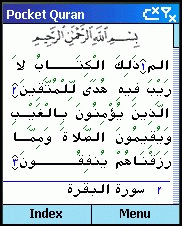 Pocket Quran
بِسْمِ اللَّهِ الرَّحْمَٰنِ الرَّحِيمِ
الم ﴿١﴾ ذَلِكَ الْكِتَابُ لَا
رَيْبَ فِيهِ هُدًى لِّلْمُتَّقِينَ ﴿٢﴾
الَّذِينَ يُؤْمِنُونَ بِالْغَيْبِ
وَيُقِيمُونَ الصَّلَاةَ وَمِمَّا
رَزَقْنَاهُمْ يُنفِقُونَ ﴿٣﴾
٢ سورة البقرة
Index Menu